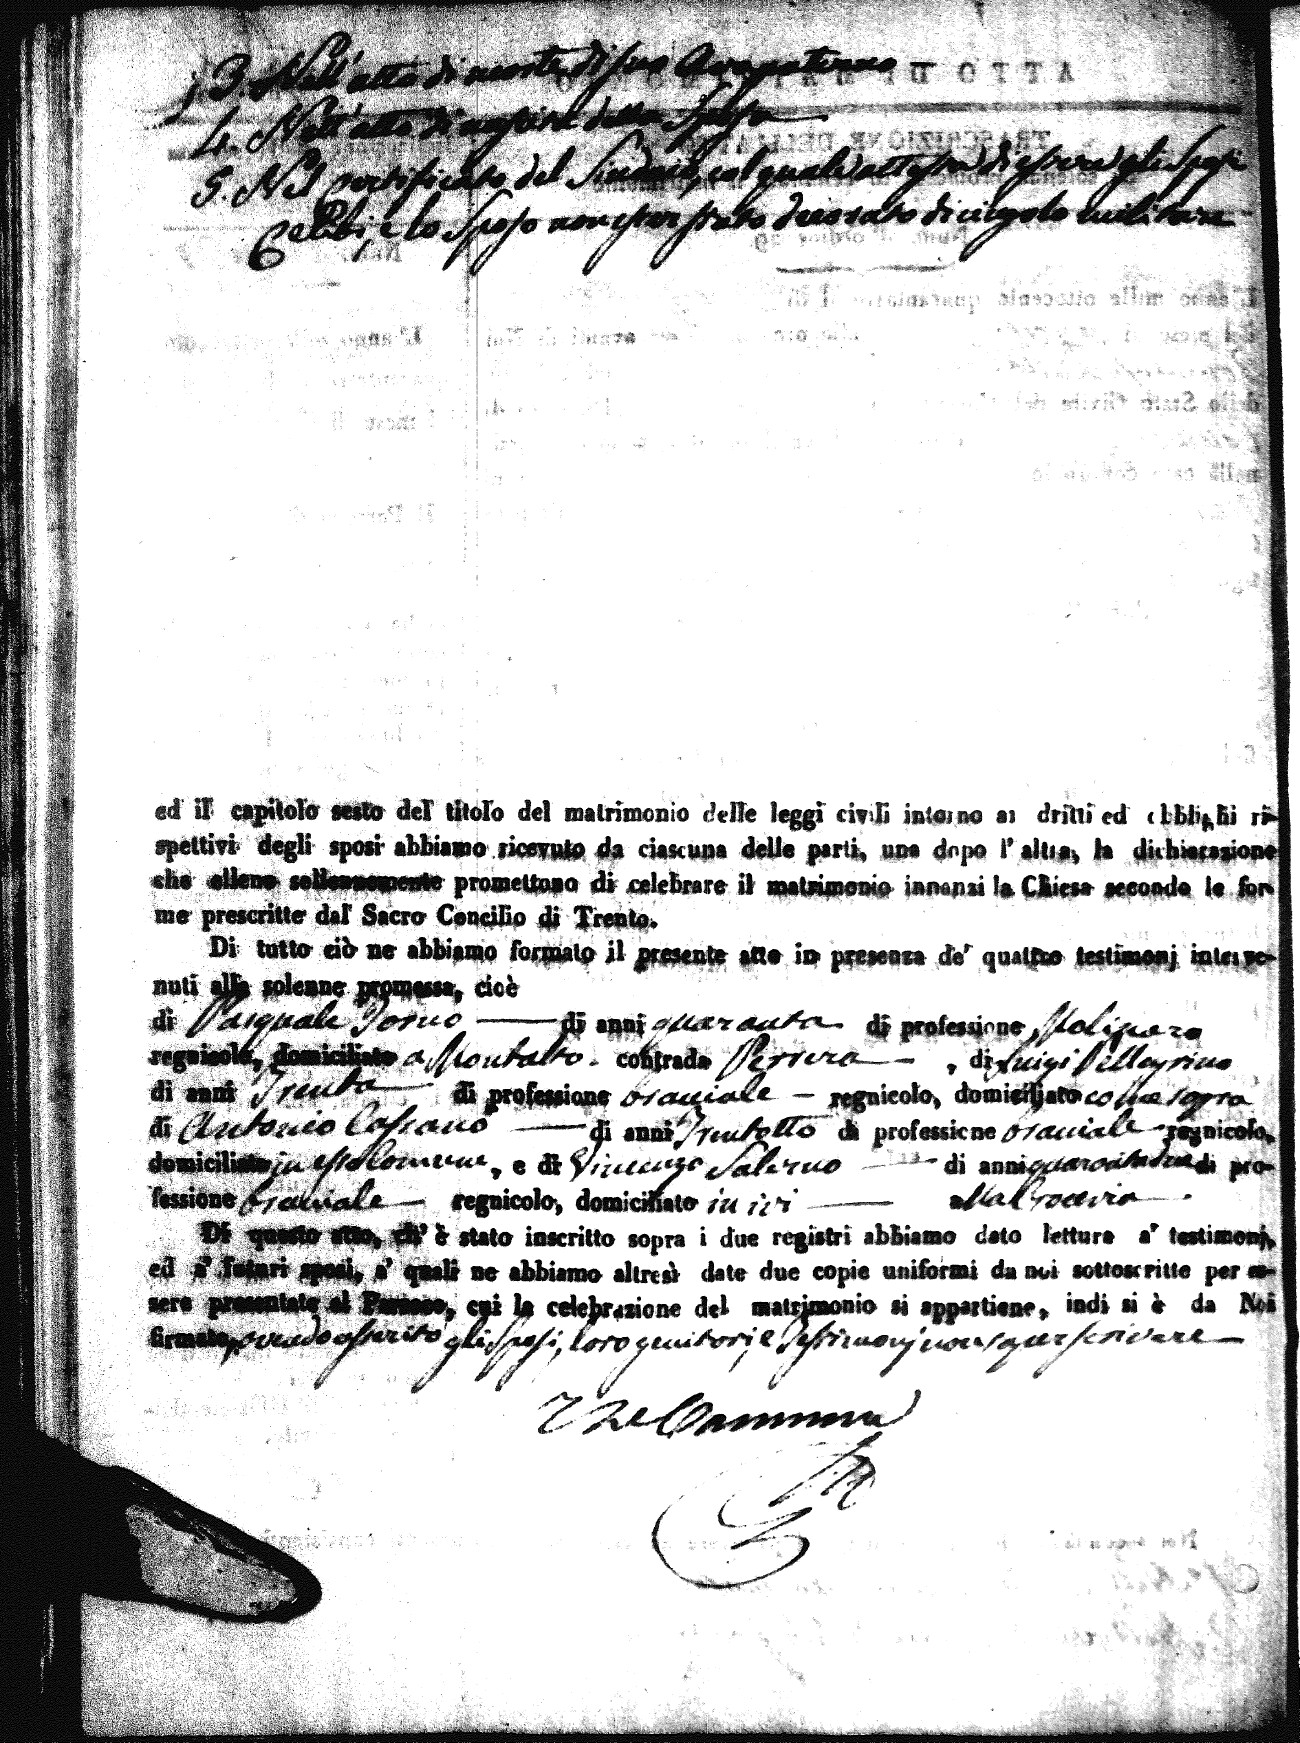 3. Nell'atto di morte di suo Avo paterno
4. Nell'atto di nascita della Sposa
5. Nel certificato del Sindaco, col quale attesta di essere gli Sposi
Celibi, e lo Sposo non esser stato decorato di cingolo militare
ed il capitolo sesto del titolo del matrimonio delle leggi civili intorno ai dritti ed obblighi ri-
spettivi degli sposi abbiamo ricevuto da ciascuna delle parti, una dopo l'altra, la dichiarazione
che elleno sollennemente promettono di celebrare il matrimonio innanzi la Chiesa secondo le for-
me prescritte dal Sacro Concilio di Trento.
Di tutto ciò ne abbiamo formato il presente atto in presenza de' quattro testimonj interve-
nuti alla solenne promessa, cioè
di Pasquale di anni quaranta di professione Molinaro
regnicolo, domiciliato a Montalto contrada , di Luigi Pellegrino
di anni Trenta di professione bracciale regnicolo, domiciliato come sopra
di Antonio di anni Trentotto di professione bracciale regnicolo,
domiciliato in , e di Vincenzo Salerno di anni di pro-
fessione bracciale regnicolo, domiciliato in ivi
Di questo atto, ch' è stato inscritto sopra i due registri abbiamo dato lettura a' testimonj,
ed a' futuri sposi, a' quali ne abbiamo altresì date due copie uniformi da noi sottoscritte per es-
sere presentate al Parroco, cui la celebrazione del matrimonio si appartiene, indi si è da Noi
firmato, avendo asserito gli Sposi, loro genitori, e Testimonj non saper scrivere